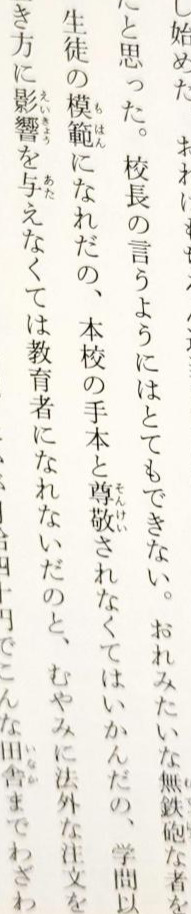 し始めた。おれはもちろん
たと思った。校長の言うようにはとてもできない。おれみたいな無鉄砲な者を
生徒の模範になれだの、本校の手本と尊敬されなくてはいかんだの、学問以
き方に影響を与えなくては教育者になれないだのと、むやみに法外な注文を
月給四十円でこんな田舎までわざわ